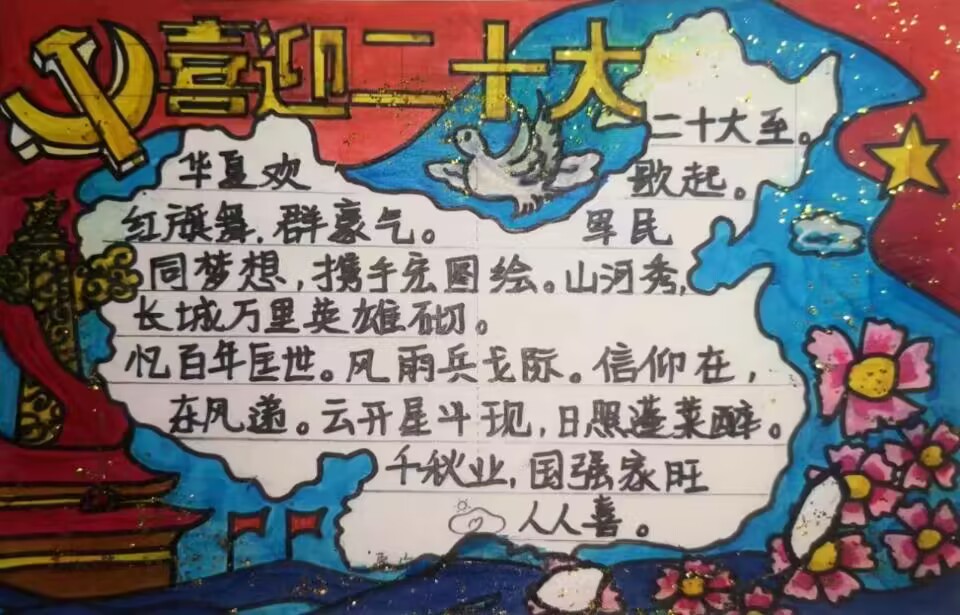 喜迎二十大
二十大至。
华夏欢 歌起。
红旗舞，群豪气。 军民
同梦想，携手宏图绘。山河秀，
长城万里英雄砌。
忆百年匡世。风雨兵戈际。信仰在，
在风递。云开星斗现，日照蓬莱醉。
千秋业，国强家旺
人人喜。